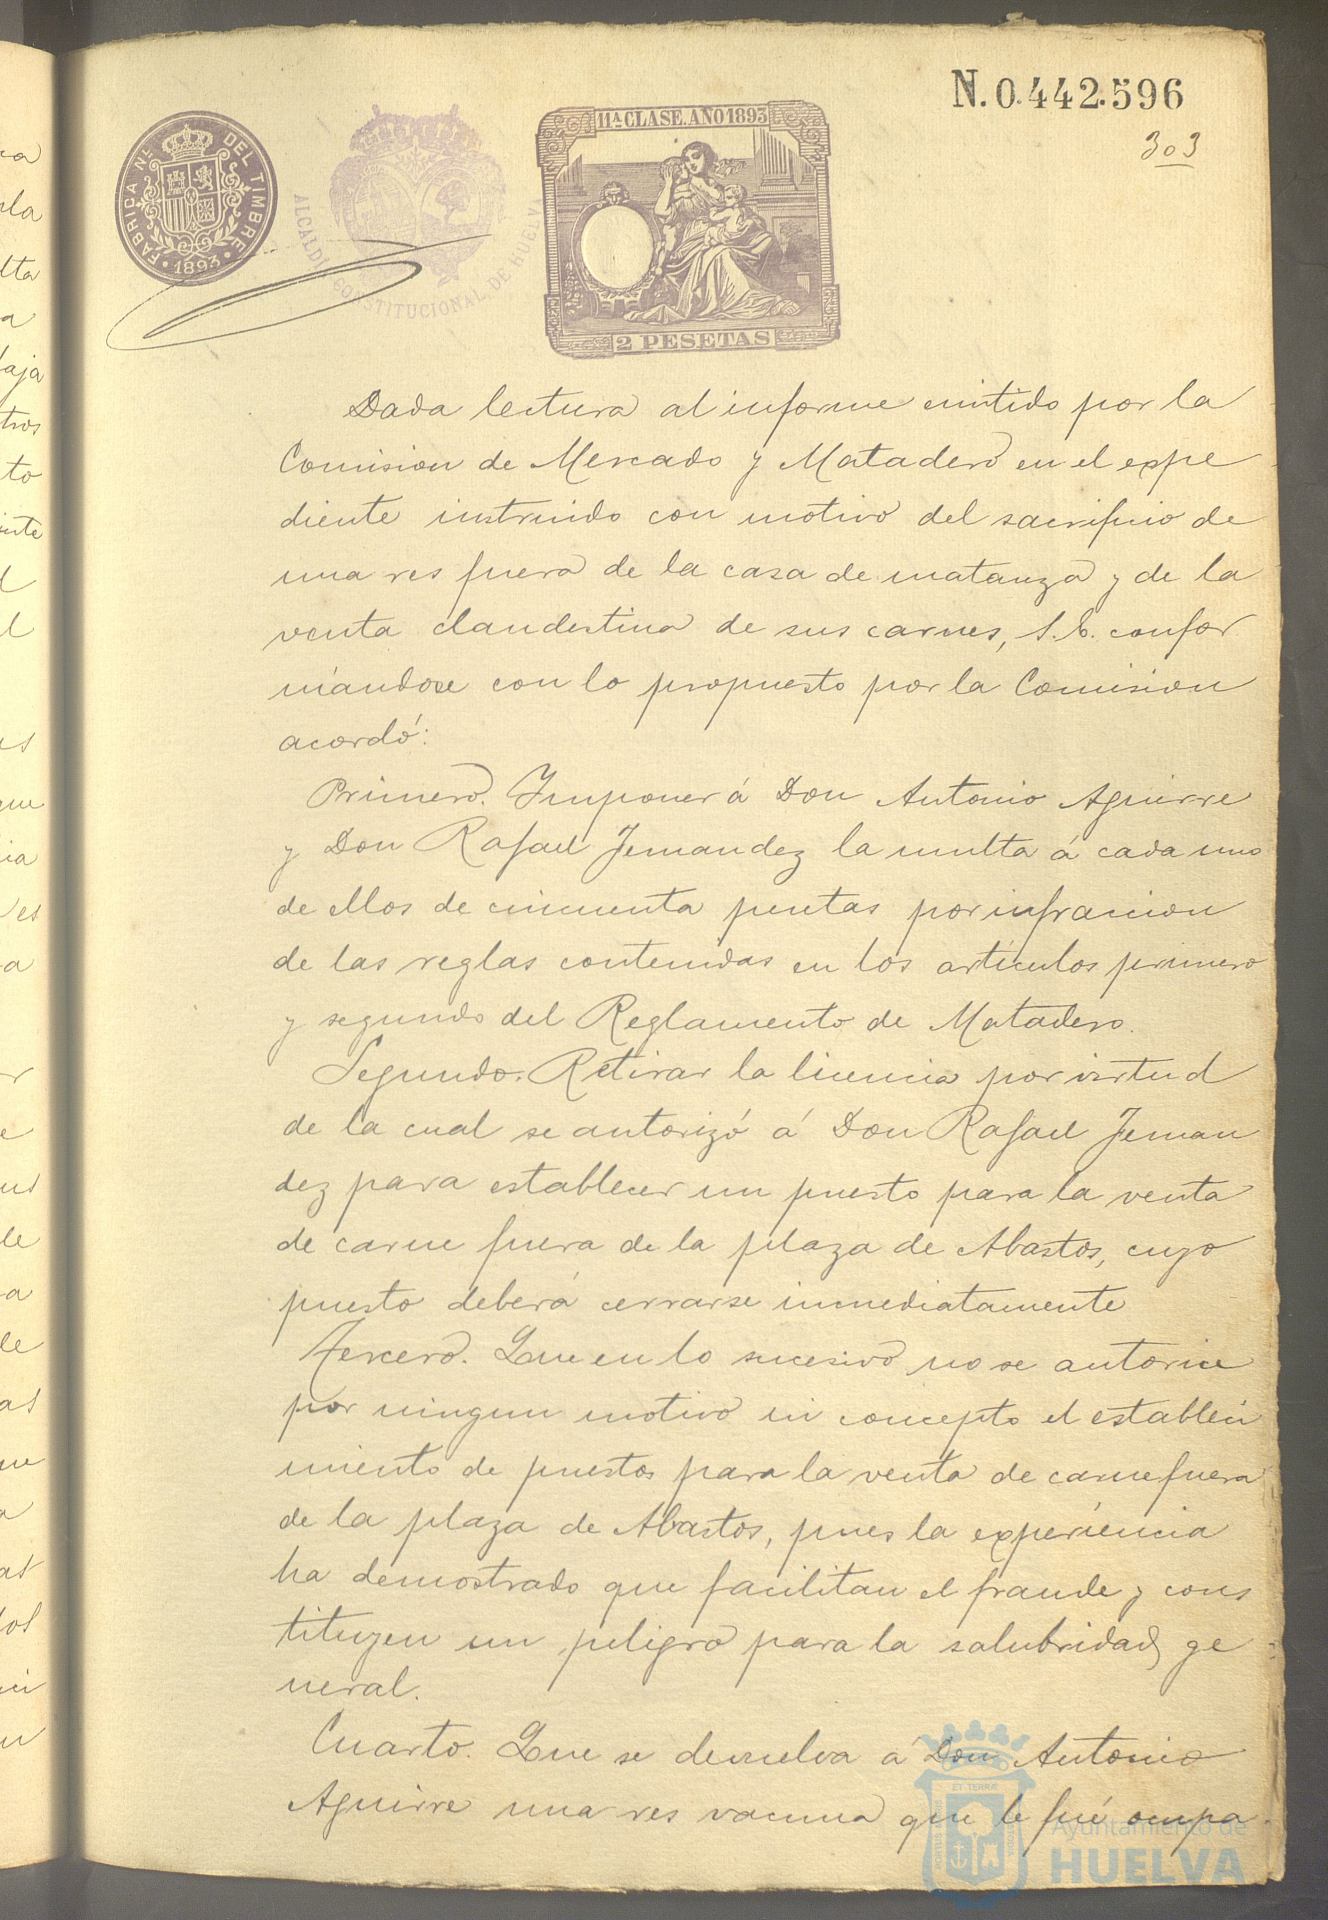 N. 0.442.596
303
FABRICA N.L DEL TIMBRE
1893
ALCALDIA CONSTITUCIONAL DE HUELVA
11A CLASE. AÑO 1893
2 PESETAS
Dada lectura al informe emitido por la
Comision de Mercado y Matadero en el expe
diente instruido con motivo del sacrificio de
una res fuera de la casa de matanza y de la
venta clandestina de sus carnes, S. E. confor
mándose con lo propuesto por la Comision
acordó:
Primero. Imponer á Don Antonio Aguirre
y Don Rafael Fernandez la multa á cada uno
de ellos de cincuenta pesetas por infraccion
de las reglas contenidas en los artículos primero
y segundo del Reglamento de Matadero.
Segundo. Retirar la licencia por virtud
de la cual se autorizó á Don Rafael Fernan
dez para establecer un puesto para la venta
de carne fuera de la plaza de Abastos, cuyo
puesto deberá cerrarse inmediatamente
Tercero. Que en lo sucesivo no se autorice
por ningun motivo ni concepto el estableci
miento de puestos para la venta de carne fuera
de la plaza de Abastos, pues la experiencia
ha demostrado que facilitan el fraude y cons
tituyen un peligro para la salubridad ge
neral.
Cuarto. Que se devuelva á Don Antonio
Aguirre una res vacuna que le fué ocupa
Ayuntamiento de
HUELVA